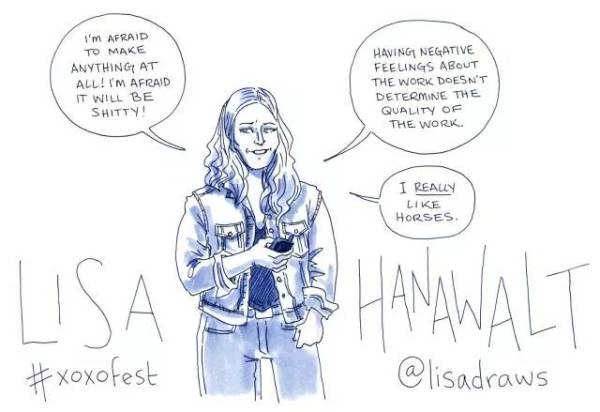 I'M AFRAID
TO MAKE
ANYTHING AT
ALL! I'M AFRAID
IT WILL BE
SHITTY!
HAVING NEGATIVE
FEELINGS ABOUT
THE WORK DOESN'T
DETERMINE THE
QUALITY OF
THE WORK.
I REALLY
LIKE
HORSES.
LISA HANAWALT
#xoxofest
@lisadraws